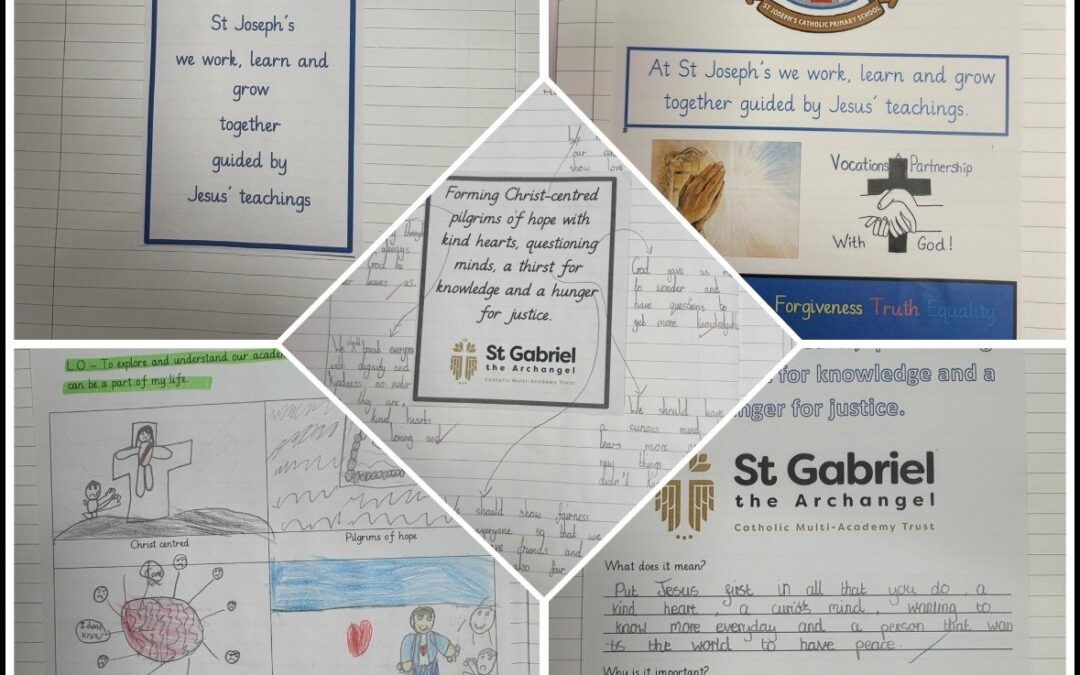 St Joseph's
we work, learn and
grow
together
guided by
Jesus' teachings
ST JOSEPH'S CATHOLIC PRIMARY SCHOOL
At St Joseph's we work, learn and grow
together guided by Jesus' teachings.
Vocations Partnership
With God!
Forgiveness Truth Equality
We
our
show love
always
God he
leaves us.
We should treat everyone
with dignity and
kindness no matter
they are,
kind hearts
loving and
Forming Christ-centred
pilgrims of hope with
kind hearts, questioning
minds, a thirst for
knowledge and a hunger
for justice.
St Gabriel
the Archangel
Catholic Multi-Academy Trust
God gave us
to wonder and
have questions to
get more knowledge
We should have
a curious mind
learn more
new things
didn't
should show fairness
everyone so that we
friends and
also fair
L.O – To explore and understand our
can be a part of my life.
Christ centred
Pilgrims of hope
I don't
know
for knowledge and a
for justice.
St Gabriel
the Archangel
Catholic Multi-Academy Trust
What does it mean?
Put Jesus first in all that you do, a
kind heart, a curios mind, wanting to
know more everyday and a person that wan
-ts the world to have peace.
Why is it important?